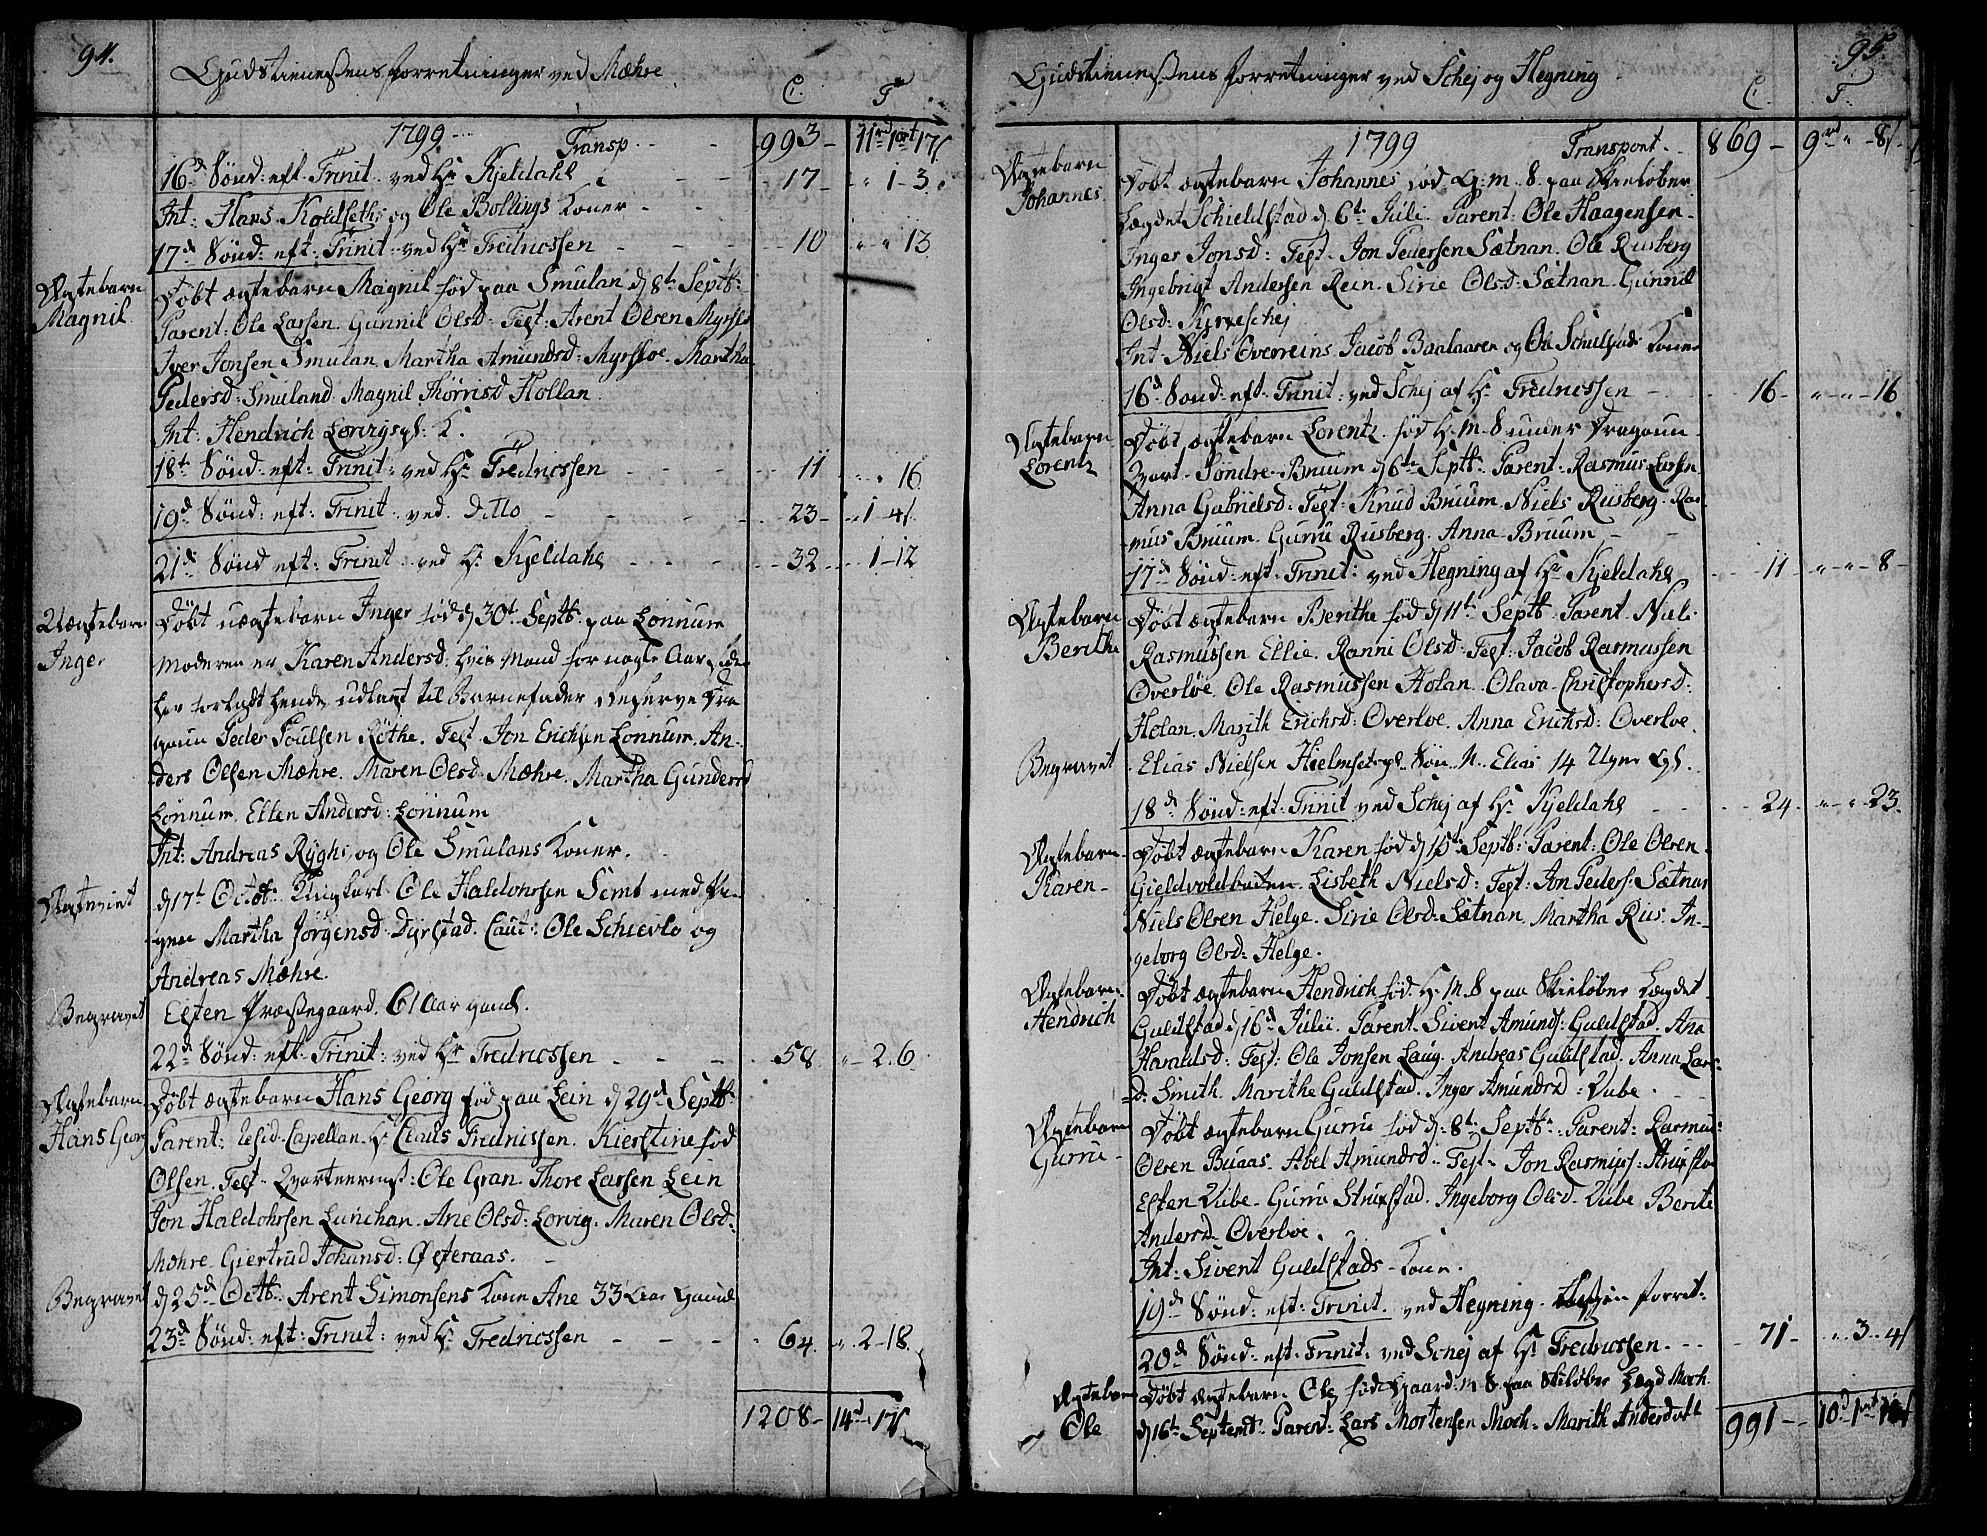 94.
Gudstienestens forretninger ved Mæhre
C. T.
1799 Transp. 993 11rd 1ort 17s
16d Sønd: eft. Trinit. ved Hr Kjeldahl 17 1 3
Int: Hans Koldseths og Ole Bollings Koner
17d Sønd: eft: Trinit. ved Hr Fredricssen 10 13
Ægtebarn Magnil
Døbt ægtebarn Magnil fød paa Smulan d 8t Septb:
Parent: Ole Larsen. Gunnil Olsd. Test: Arent Olsen Myrsloe
Iver Jonsen Smulan. Martha Amundsd: Myrsloe. Martha
Pedersd: Smuland. Magnil Thørrisd Hollan.
Int. Hendrich Lorvigspl: K.
18t Sønd: eft: Trinit: ved Hr Fredricssen 11 16
19d Sønd: eft: Trinit. ved Ditto 23 1 4
21d Sønd eft: Trinit. ved Hr Kjeldahl 32 1 12
Uægtebarn Inger
Døbt uægtebarn Inger fød d 30t Septb: paa Lønnum
Moderen er Karen Andersd: hvis Mand for nogle Aar siden
har forladt hende, udlagt til Barnefader Reserve Dra
goun Peder Poulsen Røthe. Test. Jon Erichsen Lønnum. An-
ders Olsen Mæhre. Maren Olsd: Mæhre. Martha Gundersd
Lønnum. Ellen Andersd: Lønnum
Int: Andreas Ryghs og Ole Smulans Koner.
Ægteviet
d 17t Octob: Ungkarl Ole Haldohrsen Semb med Pi-
gen Martha Jørgensd. Dyrstad. Caut: Ole Schievlo og
Andreas Mæhre.
Begravet
Esten Præstegaard. 61 Aar gaml.
22d Sønd: eft: Trinit: ved Hr Fredricssen 58 2 6
Ægtebarn Hans Georg
Døbt ægtebarn Hans Georg fød paa Lein d 29d Septb:
Parent: Resid: Capellan Hr Claus Fredricssen. Kierstine fød
Olsen. Test. Qvarteermst: Ole Gran. Thore Larsen Lein
Jon Haldohrsen Lunchan. Ane Olsd: Lorvig. Maren Olsd:
Mæhre. Giertrud Johansd: Østeraas.
Begravet
d 25d Octb: Arent Simonsens Kone Ane 33 Aar gaml
23d Sønd: eft: Trinit: ved Hr Fredricssen 64 2 18
1208 14rd 17s
95.
Gudstienestens forretninger ved Schej og Hegning
C. T.
1799 Transport. 869 9rd 8s
Ægtebarn Johannes
Døbt ægtebarn Johannes fød Hj: m. 8. paa Skieløber
Lægdet Schieldstad d. 6t Juli. Parent: Ole Haagensen.
Inger Jonsd: Test. Jon Pedersen Sætnan. Ole Rusberg
Ingebrigt Andersen Rein. Sirie Olsd: Sætnan. Gunnil
Olsd: Kirkeschej
Int. Niels Overreins Jacob Baalaasen og Ole Schielstads Koner
16d Sønd: eft: Trinit: ved Schej af Hr Fredricssen 16 16
Ægtebarn Lorentz
Døbt ægtebarn Lorentz. fød Hj. M. 8 under Dragoun
Qvart. Søndre Bruum d 6te Septb: Parent: Rasmus Larsen
Anna Gabrielsd: Test: Knud Bruum. Niels Rüsberg. Ras
mus Bruum. Gurru Rusberg. Anna Bruum
17d Sønd: eft: Trinit: ved Hegning af Hr Kjeldahl 11 8
Ægtebarn Berithe
Døbt ægtebarn Berithe fød d 11t Septb: Parent. Niels
Rasmussen Ellie. Ranni Olsd: Test: Jacob Rasmussen
Overløe. Ole Rasmussen Holan. Olava Christophersd:
Holan. Marith Erichsd: Overloe. Anna Erichsd: Overloe.
Begravet
Elias Nielsen Hielmsetspl. Søn N. Elias 14 Uger gl.
18d Sønd: eft: Trinit ved Schej af Hr Kjeldahl 24 23
Ægtebarn Karen
Døbt ægtebarn Karen fød d 15t Septb: Parent: Ole Olsen
Gieldvoldbuten. Lisbeth Nielsd: Test: Jon Peders: Sætnan
Niels Olsen Helge. Sirie Olsd: Sætnan. Martha Rus. In-
geborg Olsd: Helge.
Ægtebarn Hendrich
Døbt ægtebarn Hendrich fød Hj. M. 8 paa Skieløber Lægdet
Guldstad d 16d Julii. Parent. Sivent Amunds: Guldstad. Ana
Haraldsd: Test: Ole Jonsen Laug. Andreas Guldstad. Anna Lars-
d. Smith. Marithe Guldstad. Inger Amundsd: Vube.
Ægtebarn Gurru
Døbt ægtebarn Gurru fød d. 8t Septb: Parent: Rasmus
Olsen Buaas. Abel Amundsd. Test. Jon Rasmuss: Struxstad
Esten Vibe. Gurru Struxstad. Ingeborg Olsd. Vube. Berite
Andersd. Overloe.
Int: Sivent Guldstads Kone.
19d Sønd: eft: Trinit. ved Hegning. Ingen forret:
20d Sønd: eft: Trinit: ved Schej af Hr Fredricssen. 71 3 4
Ægtebarn Ole
Døbt ægtebarn Ole, fød Hjaard. M. 8. paa Skiløber Lægd Moch
d 16t Septemb: Parent: Lars Mortensen Moch. Marith Andersdatt
991 10rd 1ort